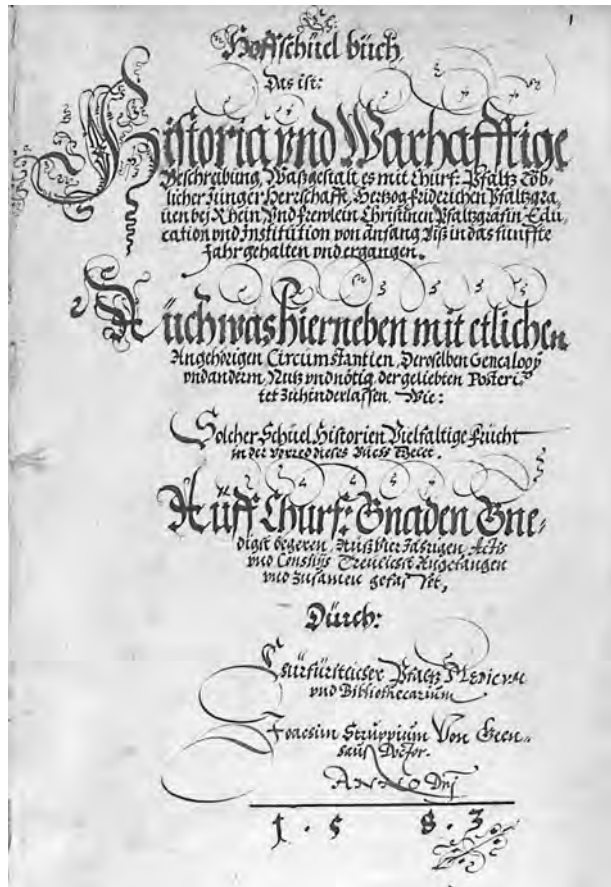 1
Hoffschüel büch
Das ist:
Historia vnd Warhafftige
Beschreibung, Waßgestalt es mit Churf: Pfaltz Löb-
licher Junger Herrschafft, Hertzog Friderichen Pfaltzgra,
uen bej Rhein Vnd frewlein Christinen Pfaltzgräfin Edu,
cation vnd Institution von anfang Biß in das funffte
Jahr gehalten vnd ergangen.
Aüch was hierneben mit etlichen
Angehörigen Circumstantien, Deroselben Genealogÿ
vnd anderm, Nutz vnd nötig, der geliebten Posteri,
tet zuhinderlassen. Wie:
Solcher Schüel Historien Vielfaltige frücht
in der vorred dieses Buchs
Aüff Churf: Gnaden Gne-
digst begeren, Auß Vier Jährigen, Actis
vnd Consilijs Angefangen
vnd Zusamen gefasset,
Dürch:
Chürfürstlicher Pfaltz Medicum
vnd Bibliothecarium
Joachim Struppium Von Geln-
haus Doctor.
ANNO Dnj
1 . 5 8 . 3